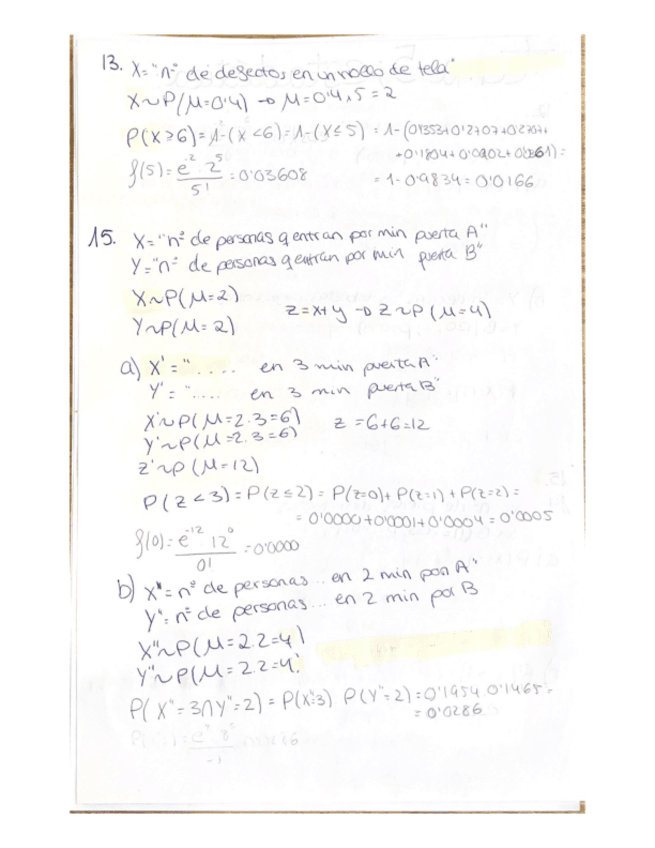 13. X="nº de defectos en un rollo de tela"
X~P(μ=0'4) → μ=0'4.5=2
P(X≥6)=1-(X<6)=1-(X≤5) = 1-(0'1353+0'2707+0'2707+
+0'1804+0'0902+0'0361)=
f(5)= e⁻² 2⁵ / 5! = 0'03608
= 1-0'9834=0'0166
15. X="nº de personas q entran por min puerta A"
Y="nº de personas q entran por min puerta B"
X~P(μ=2)
Y~P(μ=2)
Z=X+Y → Z~P(μ=4)
a) X'="..... en 3 min puerta A"
Y'="..... en 3 min puerta B"
X'~P(μ=2.3=6)
Y'~P(μ=2.3=6)
Z=6+6=12
Z'~P(μ=12)
P(Z<3)=P(Z≤2)=P(Z=0)+P(Z=1)+P(Z=2)=
= 0'0000+0'0001+0'0004=0'0005
f(0)= e⁻¹² 12⁰ / 0! = 0'0000
b) X"=nº de personas... en 2 min por A"
Y"=nº de personas... en 2 min por B
X"~P(μ=2.2=4)
Y"~P(μ=2.2=4)
P(X"=3∩Y"=2)=P(X"=3) P(Y"=2)=0'1954 0'1465=
= 0'0286